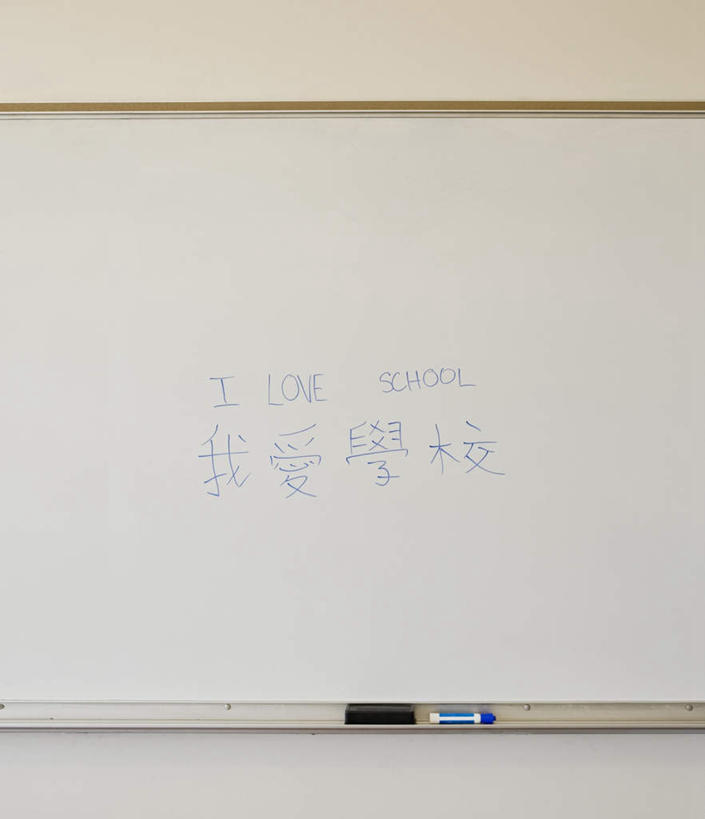 I LOVE SCHOOL
我愛學校